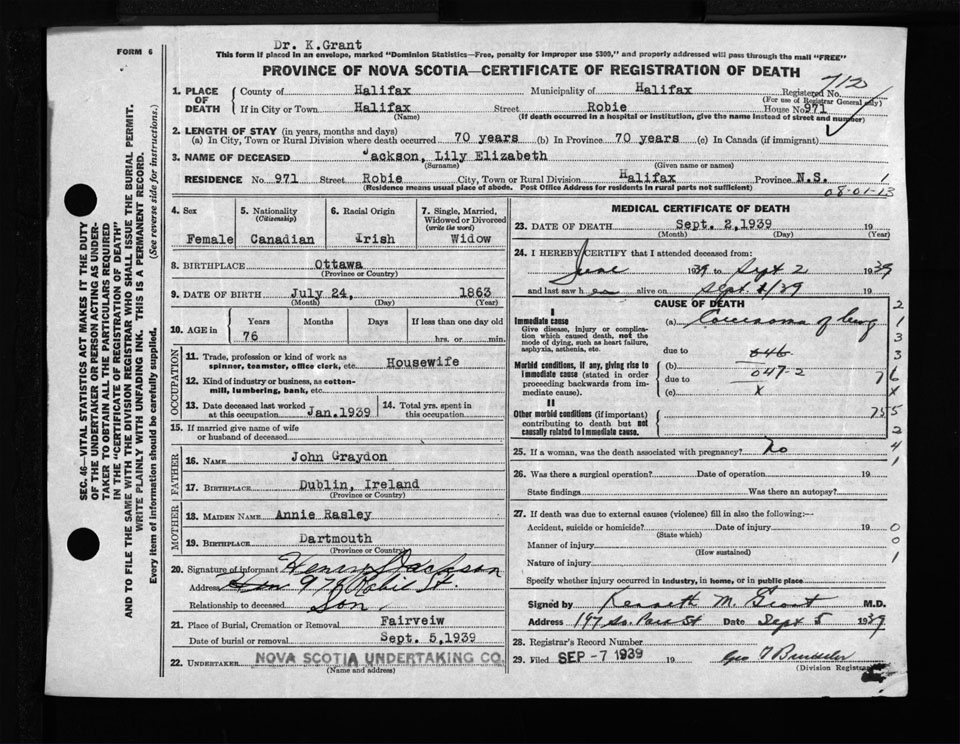 FORM 6
Dr. K.Grant
This form if placed in an envelope, marked "Dominion Statistics—Free, penalty for improper use $300," and properly addressed will pass through the mail "FREE"
PROVINCE OF NOVA SCOTIA—CERTIFICATE OF REGISTRATION OF DEATH
1. PLACE OF DEATH County of Halifax Municipality of Halifax Registered No. 712
(For use of Registrar General only)
If in City or Town Halifax Street Robie House No 971
(Name) (If death occurred in a hospital or institution, give the name instead of street and number)
2. LENGTH OF STAY (in years, months and days)
(a) In City, Town or Rural Division where death occurred 70 years (b) In Province 70 years (c) In Canada (if immigrant)
3. NAME OF DECEASED Jackson, Lily Elizabeth
(Surname) (Given name or names)
RESIDENCE No 971 Street Robie City, Town or Rural Division Halifax Province N.S. 1
(Residence means usual place of abode. Post Office Address for residents in rural parts not sufficient) 08-01-13
4. Sex
Female
5. Nationality
(Citizenship)
Canadian
6. Racial Origin
Irish
7. Single, Married, Widowed or Divorced
(write the word)
Widow
8. BIRTHPLACE Ottawa
(Province or Country)
9. DATE OF BIRTH July 24, 1863
(Month) (Day) (Year)
10. AGE in Years Months Days If less than one day old
76 hrs. or min.
OCCUPATION
11. Trade, profession or kind of work as spinner, teamster, office clerk, etc. Housewife
12. Kind of industry or business, as cotton-mill, lumbering, bank, etc.
13. Date deceased last worked at this occupation Jan.1939
14. Total yrs. spent in this occupation
15. If married give name of wife or husband of deceased
FATHER
16. NAME John Graydon
17. BIRTHPLACE Dublin, Ireland
(Province or Country)
MOTHER
18. MAIDEN NAME Annie Rasley
19. BIRTHPLACE Dartmouth
(Province or Country)
20. Signature of informant Henry Jackson
Address 976 Robie St.
Relationship to deceased Son
21. Place of Burial, Cremation or Removal Fairveiw
Date of burial or removal Sept. 5,1939
22. UNDERTAKER NOVA SCOTIA UNDERTAKING CO.
(Name and address)
MEDICAL CERTIFICATE OF DEATH
23. DATE OF DEATH Sept. 2,1939 19
(Month) (Day) (Year)
24. I HEREBY CERTIFY that I attended deceased from:
June 1939 to Sept 2 1939
and last saw h er alive on Sept 2/39
CAUSE OF DEATH
I
Immediate cause (a) Carcinoma of lung
Give disease, injury or complication which caused death, not the mode of dying, such as heart failure, asphyxia, asthenia, etc.
due to 046
Morbid conditions, if any, giving rise to immediate cause (stated in order proceeding backwards from immediate cause).
(b) 047-2
due to
(c) x
II
Other morbid conditions (if important) contributing to death but not causally related to immediate cause.
25. If a woman, was the death associated with pregnancy? No
26. Was there a surgical operation? Date of operation 19
State findings Was there an autopsy?
27. If death was due to external causes (violence) fill in also the following:—
Accident, suicide or homicide? Date of injury 19
(State which)
Manner of injury
(How sustained)
Nature of injury
Specify whether injury occurred in industry, in home, or in public place
Signed by Kenneth M. Grant M.D.
Address 197 So. Park St Date Sept 5 1939
28. Registrar's Record Number
29. Filed SEP - 7 1939 19
(Division Registrar)
2
1
3
3
7 6
X
75 5
2
4
1
0
0
1
SEC. 46—VITAL STATISTICS ACT MAKES IT THE DUTY
OF THE UNDERTAKER OR PERSON ACTING AS UNDER-
TAKER TO OBTAIN ALL THE PARTICULARS REQUIRED
IN THE "CERTIFICATE OF REGISTRATION OF DEATH"
AND TO FILE THE SAME WITH THE DIVISION REGISTRAR WHO SHALL ISSUE THE BURIAL PERMIT.
WRITE PLAINLY WITH UNFADING INK. THIS IS A PERMANENT RECORD.
Every item of information should be carefully supplied. (See reverse side for instructions.)